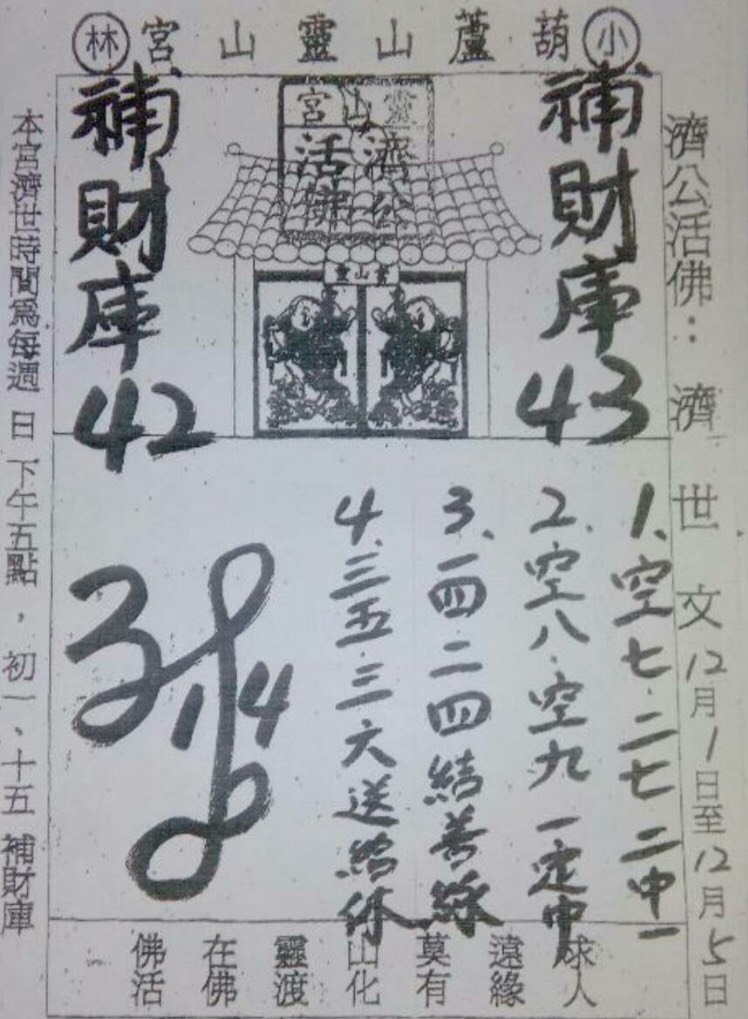 小葫蘆山靈山宮林
濟公活佛：濟世文12月1日至12月5日
補財庫43
靈山宮
濟公活佛
靈山宮
補財庫42
1、空七．二七二中一
2、空八．空九一定中
3、一四二四結善緣
4、三五．三六送給你
14
求人
遠緣
莫有
山化
靈渡
在佛
佛活
本宮濟世時間為每週日下午五點，初一、十五補財庫